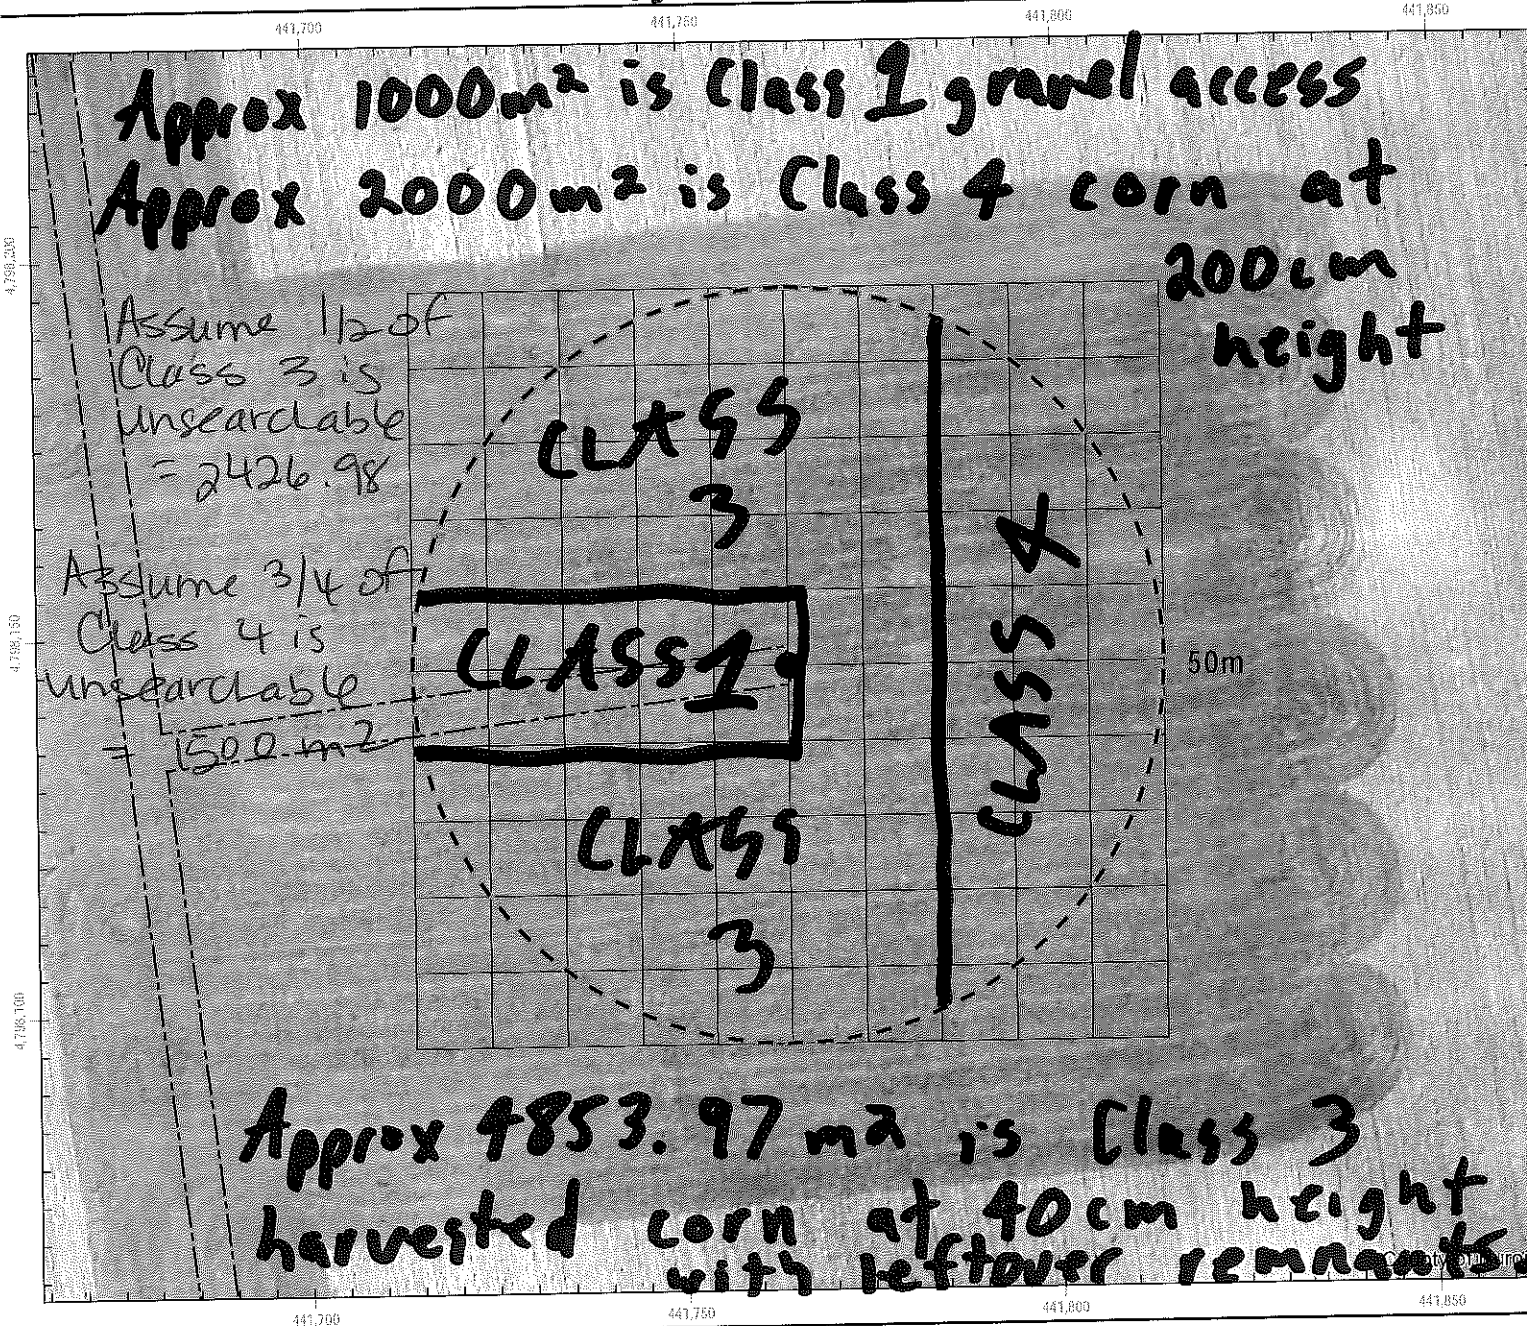 441,700
441,750
441,800
441,850
Approx 1000m² is Class 1 gravel access
Approx 2000m² is Class 4 corn at
200cm
height
4,798,200
Assume 1/2 of
Class 3 is
unsearchable
= 2426.98
CLASS
3
Assume 3/4 of
Class 4 is
unsearchable
= 1500 m²
4,798,150
CLASS 1
CLASS 4
50m
CLASS
3
4,798,100
Approx 4853.97 m² is Class 3
harvested corn at 40cm height
with leftover remnants
441,700
441,750
441,800
441,850